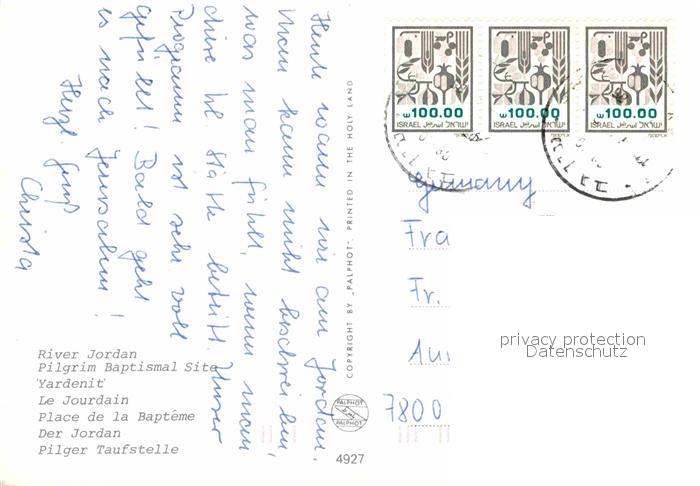 Heute waren wir am Jordan.
Man kann nicht beschreiben,
was man fühlt, wenn man
diese hl. Stätte betritt. Unser
Programm ist sehr voll
gefüllt! Bald geht
es nach Jerusalem!
Herzl. Gruß
Christa
River Jordan
Pilgrim Baptismal Site
'Yardenit'
Le Jourdain
Place de la Baptême
Der Jordan
Pilger Taufstelle
COPYRIGHT BY "PALPHOT" PRINTED IN THE HOLY LAND
PALPHOT
PALPHOT
4927
100.00 100.00 100.00
ISRAEL اسرائيل ישראל ISRAEL اسرائيل ישראל ISRAEL اسرائيل ישראל
Germany
Fra
Fr.
7800
privacy protection
Datenschutz